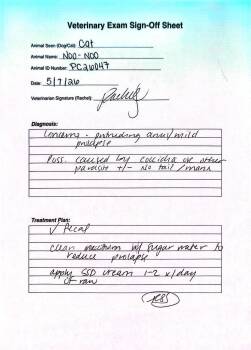 Veterinary Exam Sign-Off Sheet
Animal Seen (Dog/Cat) Cat
Animal Name: Noo-Noo
Animal ID Number: PC26047
Date: 5/7/26
Veterinarian Signature (Rachel): Rachel
Diagnosis:
Concerns - protruding anus/mild
prolapse
Poss. caused by coccidia or other
parasite +/- no tail/manx
Treatment Plan:
√ Fecal
clean rectum w/ sugar water to
reduce prolapse
apply SSD cream 1-2 x/day
if raw